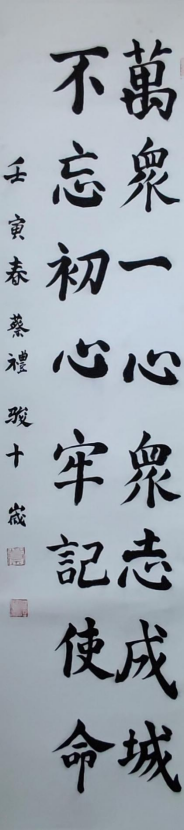 萬眾一心眾志成城
不忘初心牢記使命
壬寅春蔡禮骏十歲